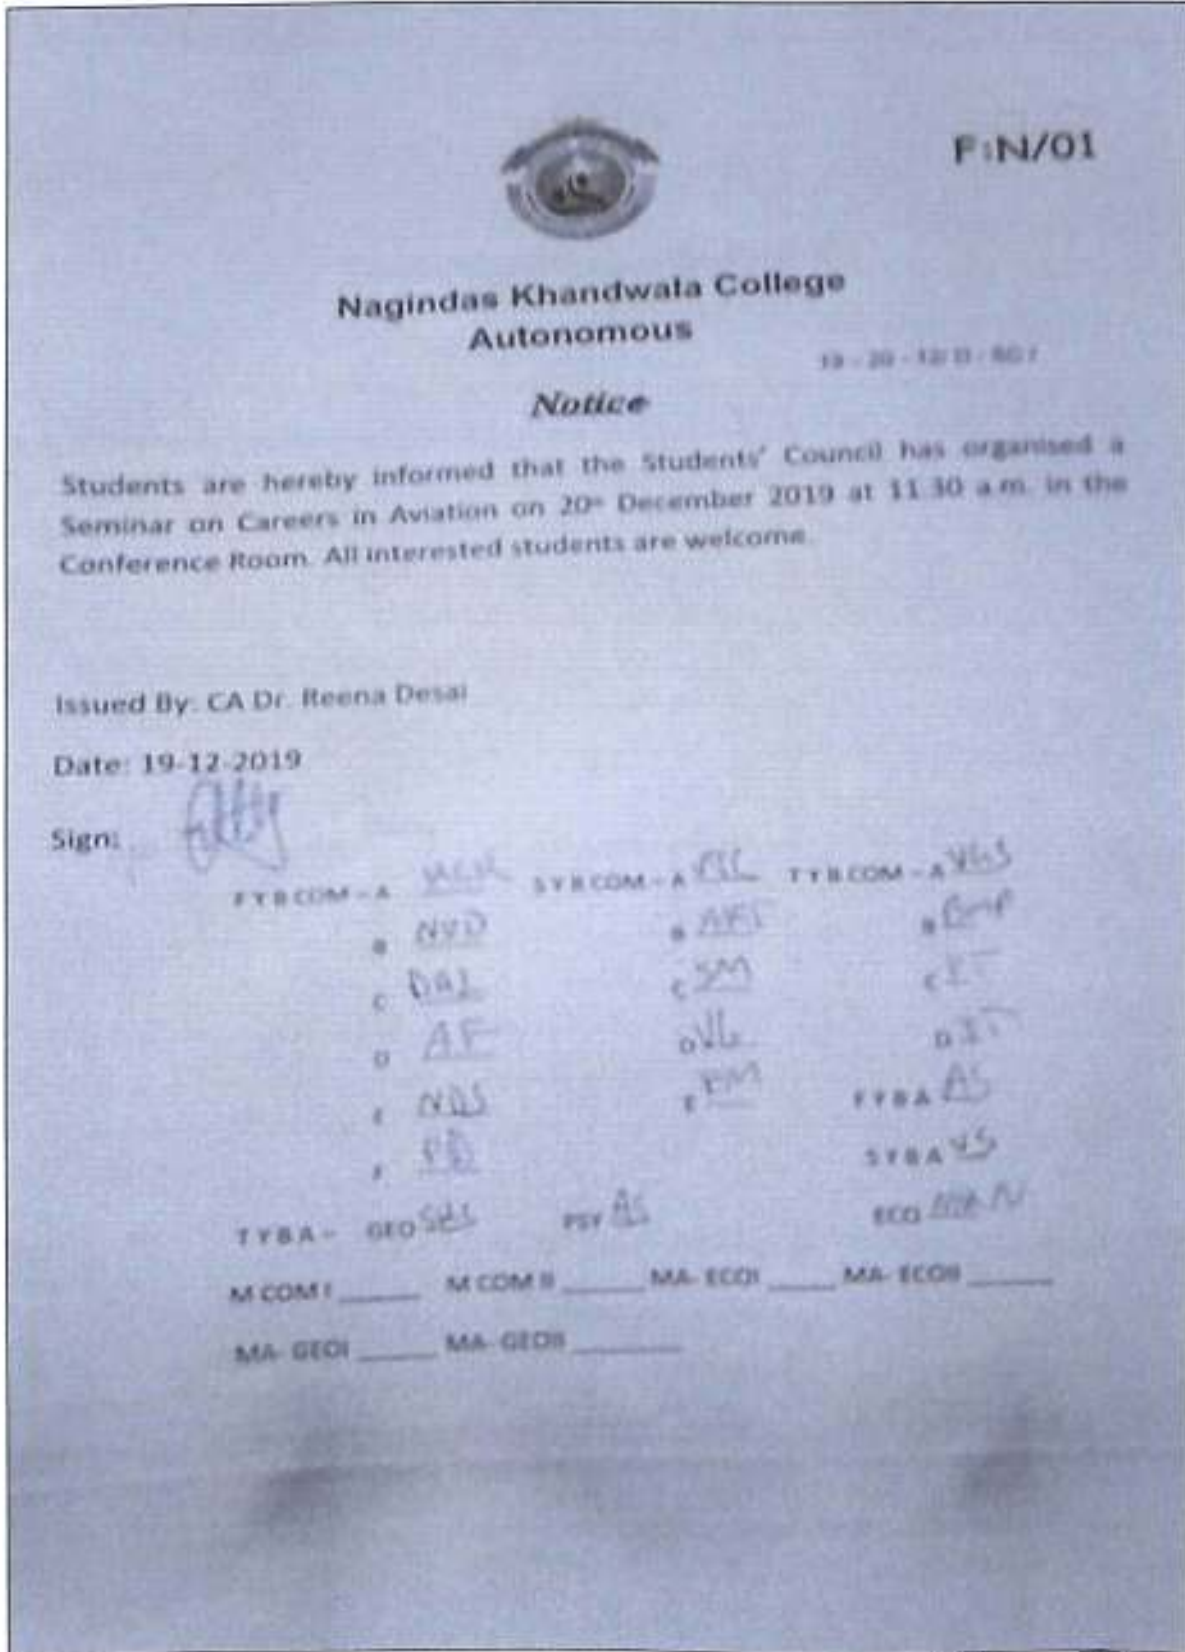 F:N/01
Nagindas Khandwala College
Autonomous
Notice
Students are hereby informed that the Students' Council has organised a
Seminar on Careers in Aviation on 20th December 2019 at 11.30 a.m. in the
Conference Room. All interested students are welcome.
Issued By: CA Dr. Reena Desai
Date: 19-12-2019
Sign:
FYBCOM - A SYBCOM - A TYBCOM - A VGS
B NVD B B
C C SM C IT
D AF D VG D IT
E NDS E FYBA AS
F SYBA VS
TYBA - GEO PSY AS ECO
M COM I ______ M COM II ______ MA- ECOI _____ MA- ECOII ______
MA- GEOI ______ MA- GEOII ________